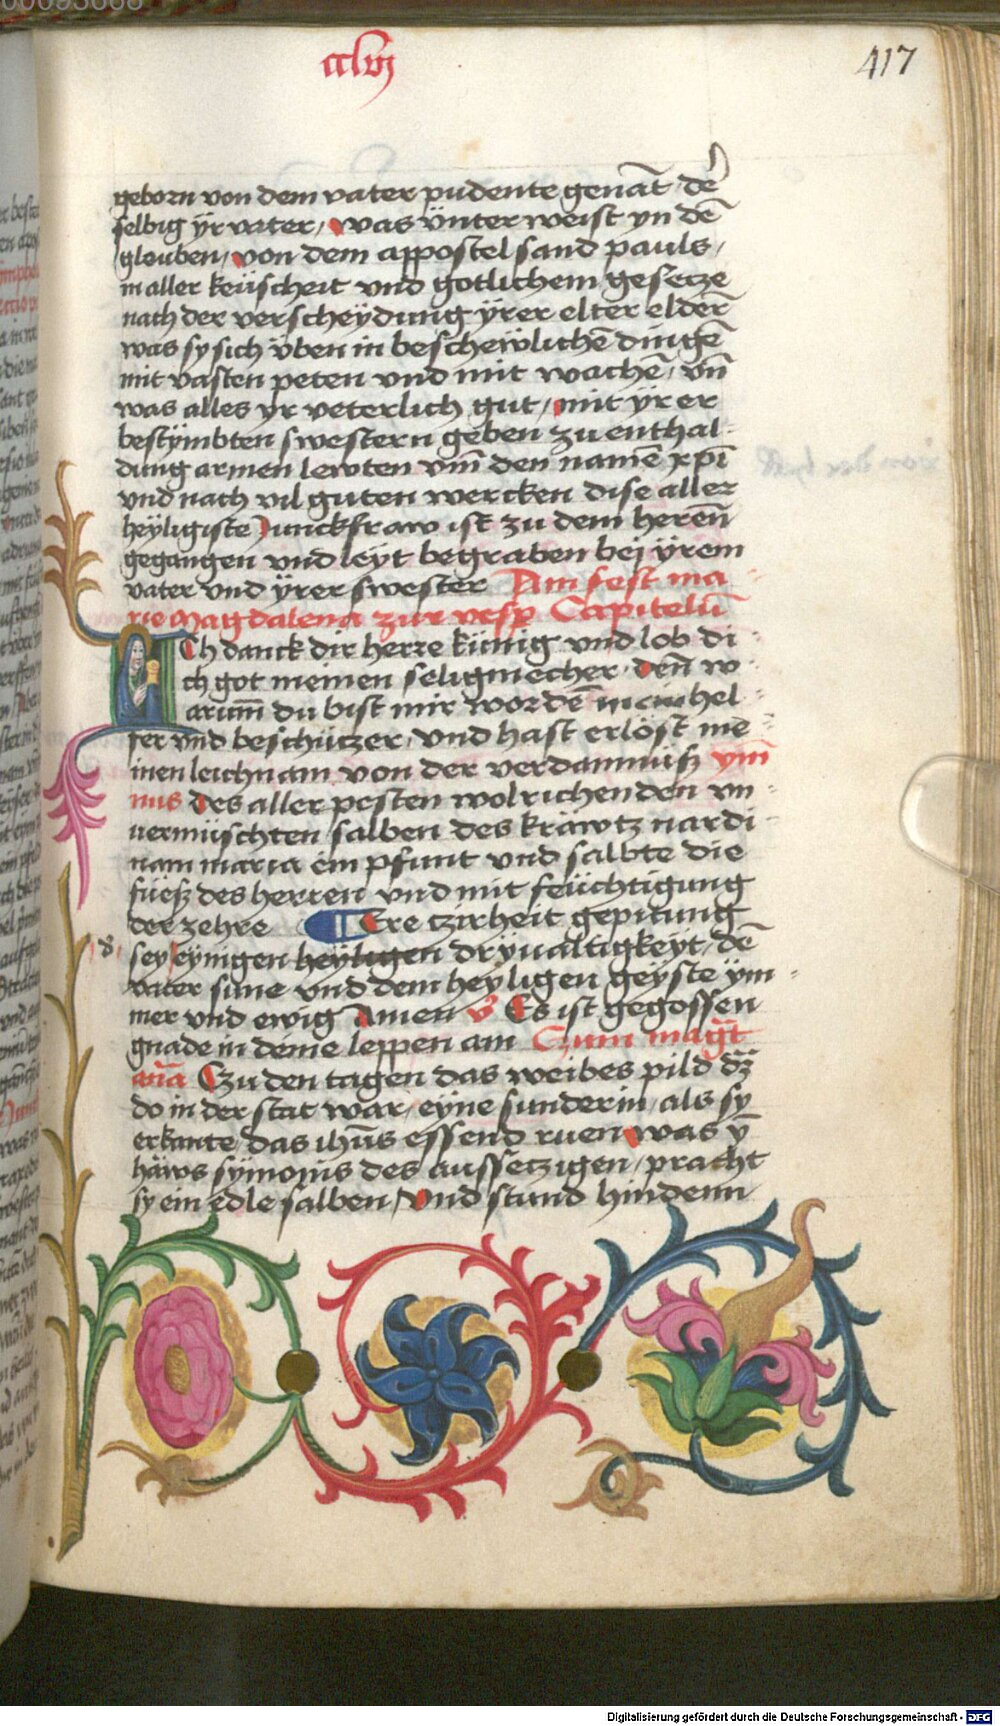 cclvj
417
geborn von dem vater pudente genāt de᷑
selbig ÿr vater / was vnter weist yn dē
glouben / von dem appostel sand pauls /
in aller keüscheit vnd gotlichem gesetze
nach der verscheÿdung ÿrer elter elderñ
was sy sich v̈ben in beschewlichē dingē
mit vasten peten vnd mit wachē / vñ
was alles yr veterlich gut / mit ÿr er
bestÿmbten swestern geben zu enthal-
dung armen lewten vm̄ den namē xp̄i
vnd nach vil guten wercken dise aller
heÿligiste Junckfraw ist zu dem hereñ
gegangen vnd leÿt begraben bej ÿrem
vater vnd ÿrer swester Am fest ma
rie Magdalena zur vesp̄ Capitelū
Ich danck dir herre künig vnd lob di
ch got meinen seligmecher · den̄ w
arum̄ du bist mir wordē mein hel
fer vnd beschützer / vnd hast erlöst me
inen leichnam von der verdamnüß ym̄
nus Des aller pesten wolrichenden vn
uermüschten salben des kräwtz nardi
nam maria ein pfunt vnd salbte die
füeß des herren vnd mit feüchtigung
der zehre Ere tzirheit gepitung
sey eynigen heÿligen drÿualtigkeyt / dē
vater sune vnd dem heyligen geÿste ÿm
mer vnd ewig Amen v᷑ Es ist gegossen
gnade in deine leppen am Zum mag̅t
an̄a Czu den tagen das weibes pild dz̄
do in der stat war / eÿne sunderin / als sy
erkante / das ih̄us essend ruen was ÿ̄
häws sÿmonis des aussetzigen / pracht
sy ein edle salben / Vnd stund hindenn
Digitalisierung gefördert durch die Deutsche Forschungsgemeinschaft - DFG